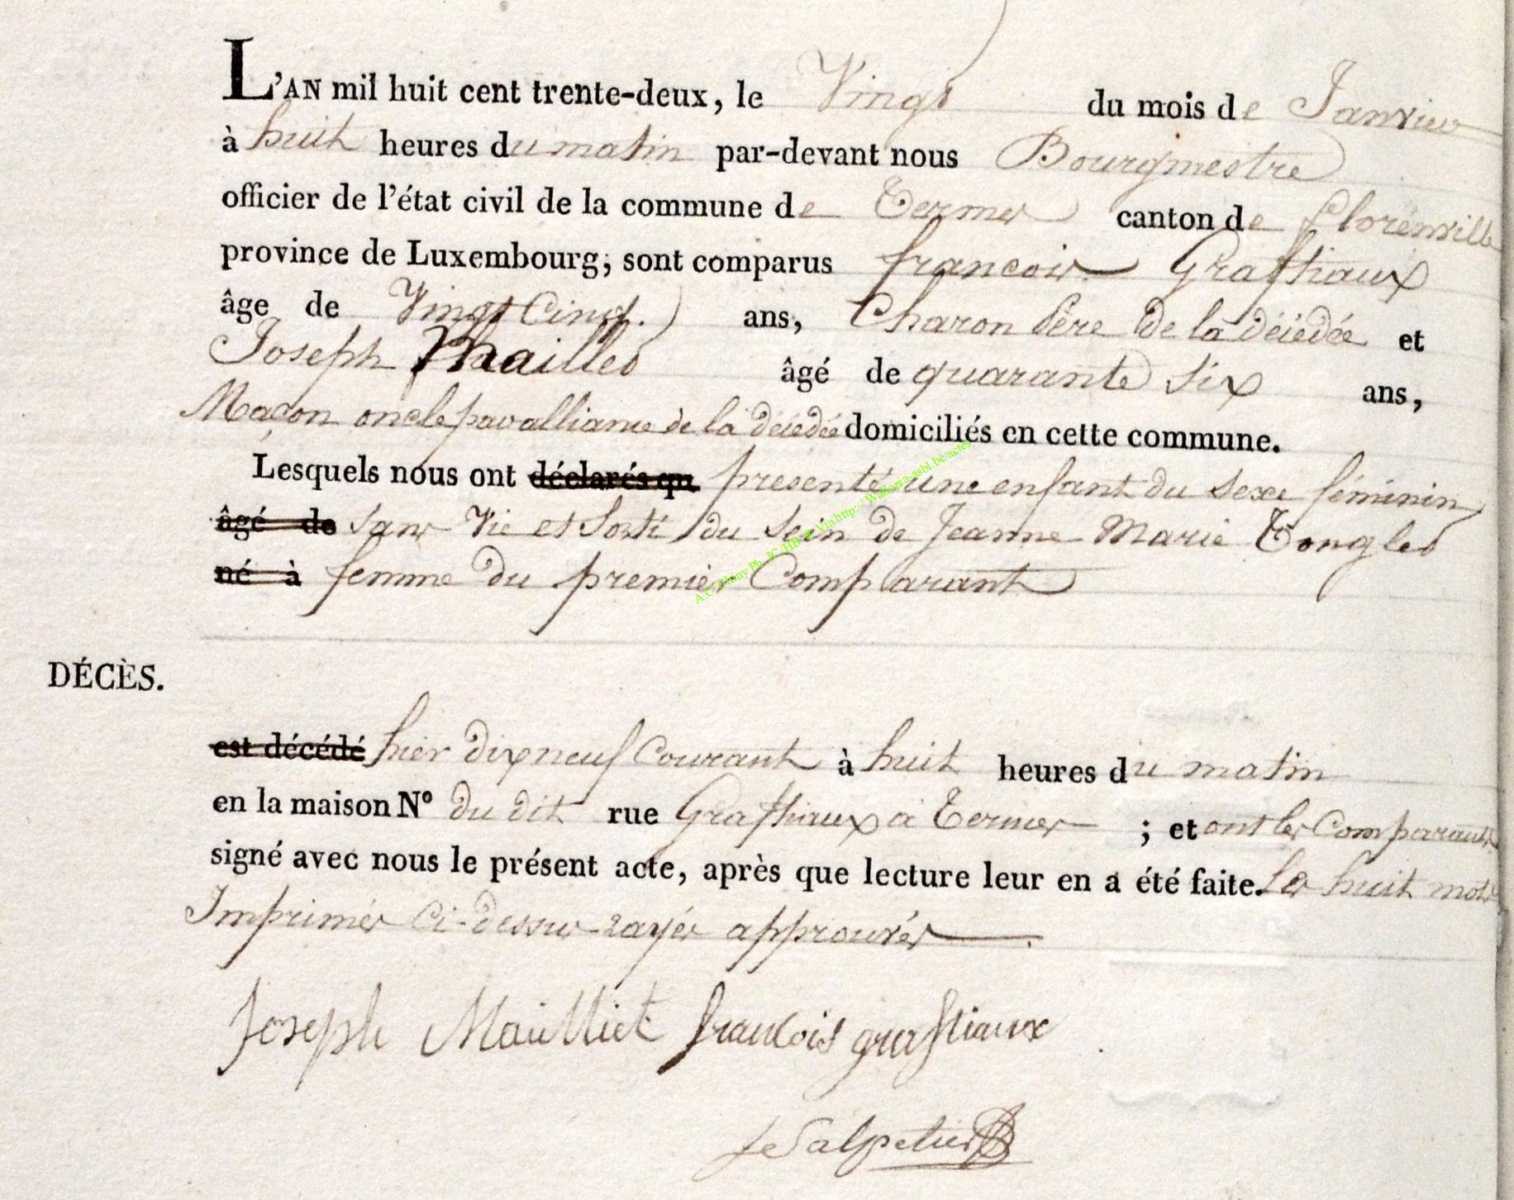 L'AN mil huit cent trente-deux, le Vingt du mois de Janvier
à huit heures du matin par-devant nous Bourgmestre
officier de l'état civil de la commune de Termes canton de florenville
province de Luxembourg, sont comparus francois Graftiaux
âge de Vingt Cinq ans, Charon Père de la décédée et
Joseph Maillet âgé de quarante six ans,
Maçon oncle par alliance de la décédée domiciliés en cette commune.
Lesquels nous ont déclarés qu presenté une enfant du sexe féminin
âgé de sans Vie et Sorti du sein de Jeanne Marie Tonglet
né à femme du premier Comparant
DÉCÈS.
est décédé hier dixneuf Courant à huit heures du matin
en la maison N° du dit rue Graftiaux à Termes ; et ont les Comparants
signé avec nous le présent acte, après que lecture leur en a été faite. Les huit mots
Imprimés Ci-dessus rayés approuvés
Joseph Mailliet francois graftiaux